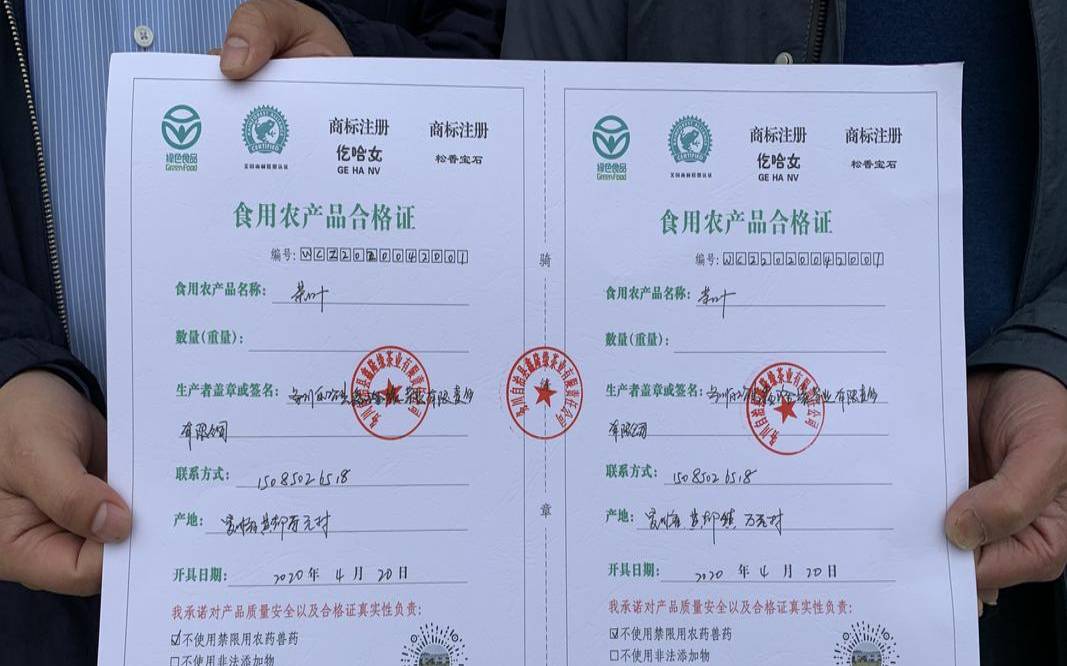 绿色食品
GreenFood
CERTIFIED
商标注册
仡哈女
GE HA NV
商标注册
松香宝石
食用农产品合格证
编号: WCZ20200042001
食用农产品名称: 茶叶
数量(重量):
生产者盖章或签名:
有限公司
联系方式: 15085026518
产地:
开具日期: 2020年 4月 20日
我承诺对产品质量安全以及合格证真实性负责:
☑不使用禁限用农药兽药
☐不使用非法添加物
骑
缝
章
务川自治县鑫隆缘茶业有限责任公司
绿色食品
GreenFood
CERTIFIED
商标注册
仡哈女
GE HA NV
商标注册
松香宝石
食用农产品合格证
编号: WCZ20200042001
食用农产品名称: 茶叶
数量(重量):
生产者盖章或签名:
有限公司
联系方式: 15085026518
产地:
开具日期: 2020 年 4月 20日
我承诺对产品质量安全以及合格证真实性负责:
☑不使用禁限用农药兽药
☐不使用非法添加物